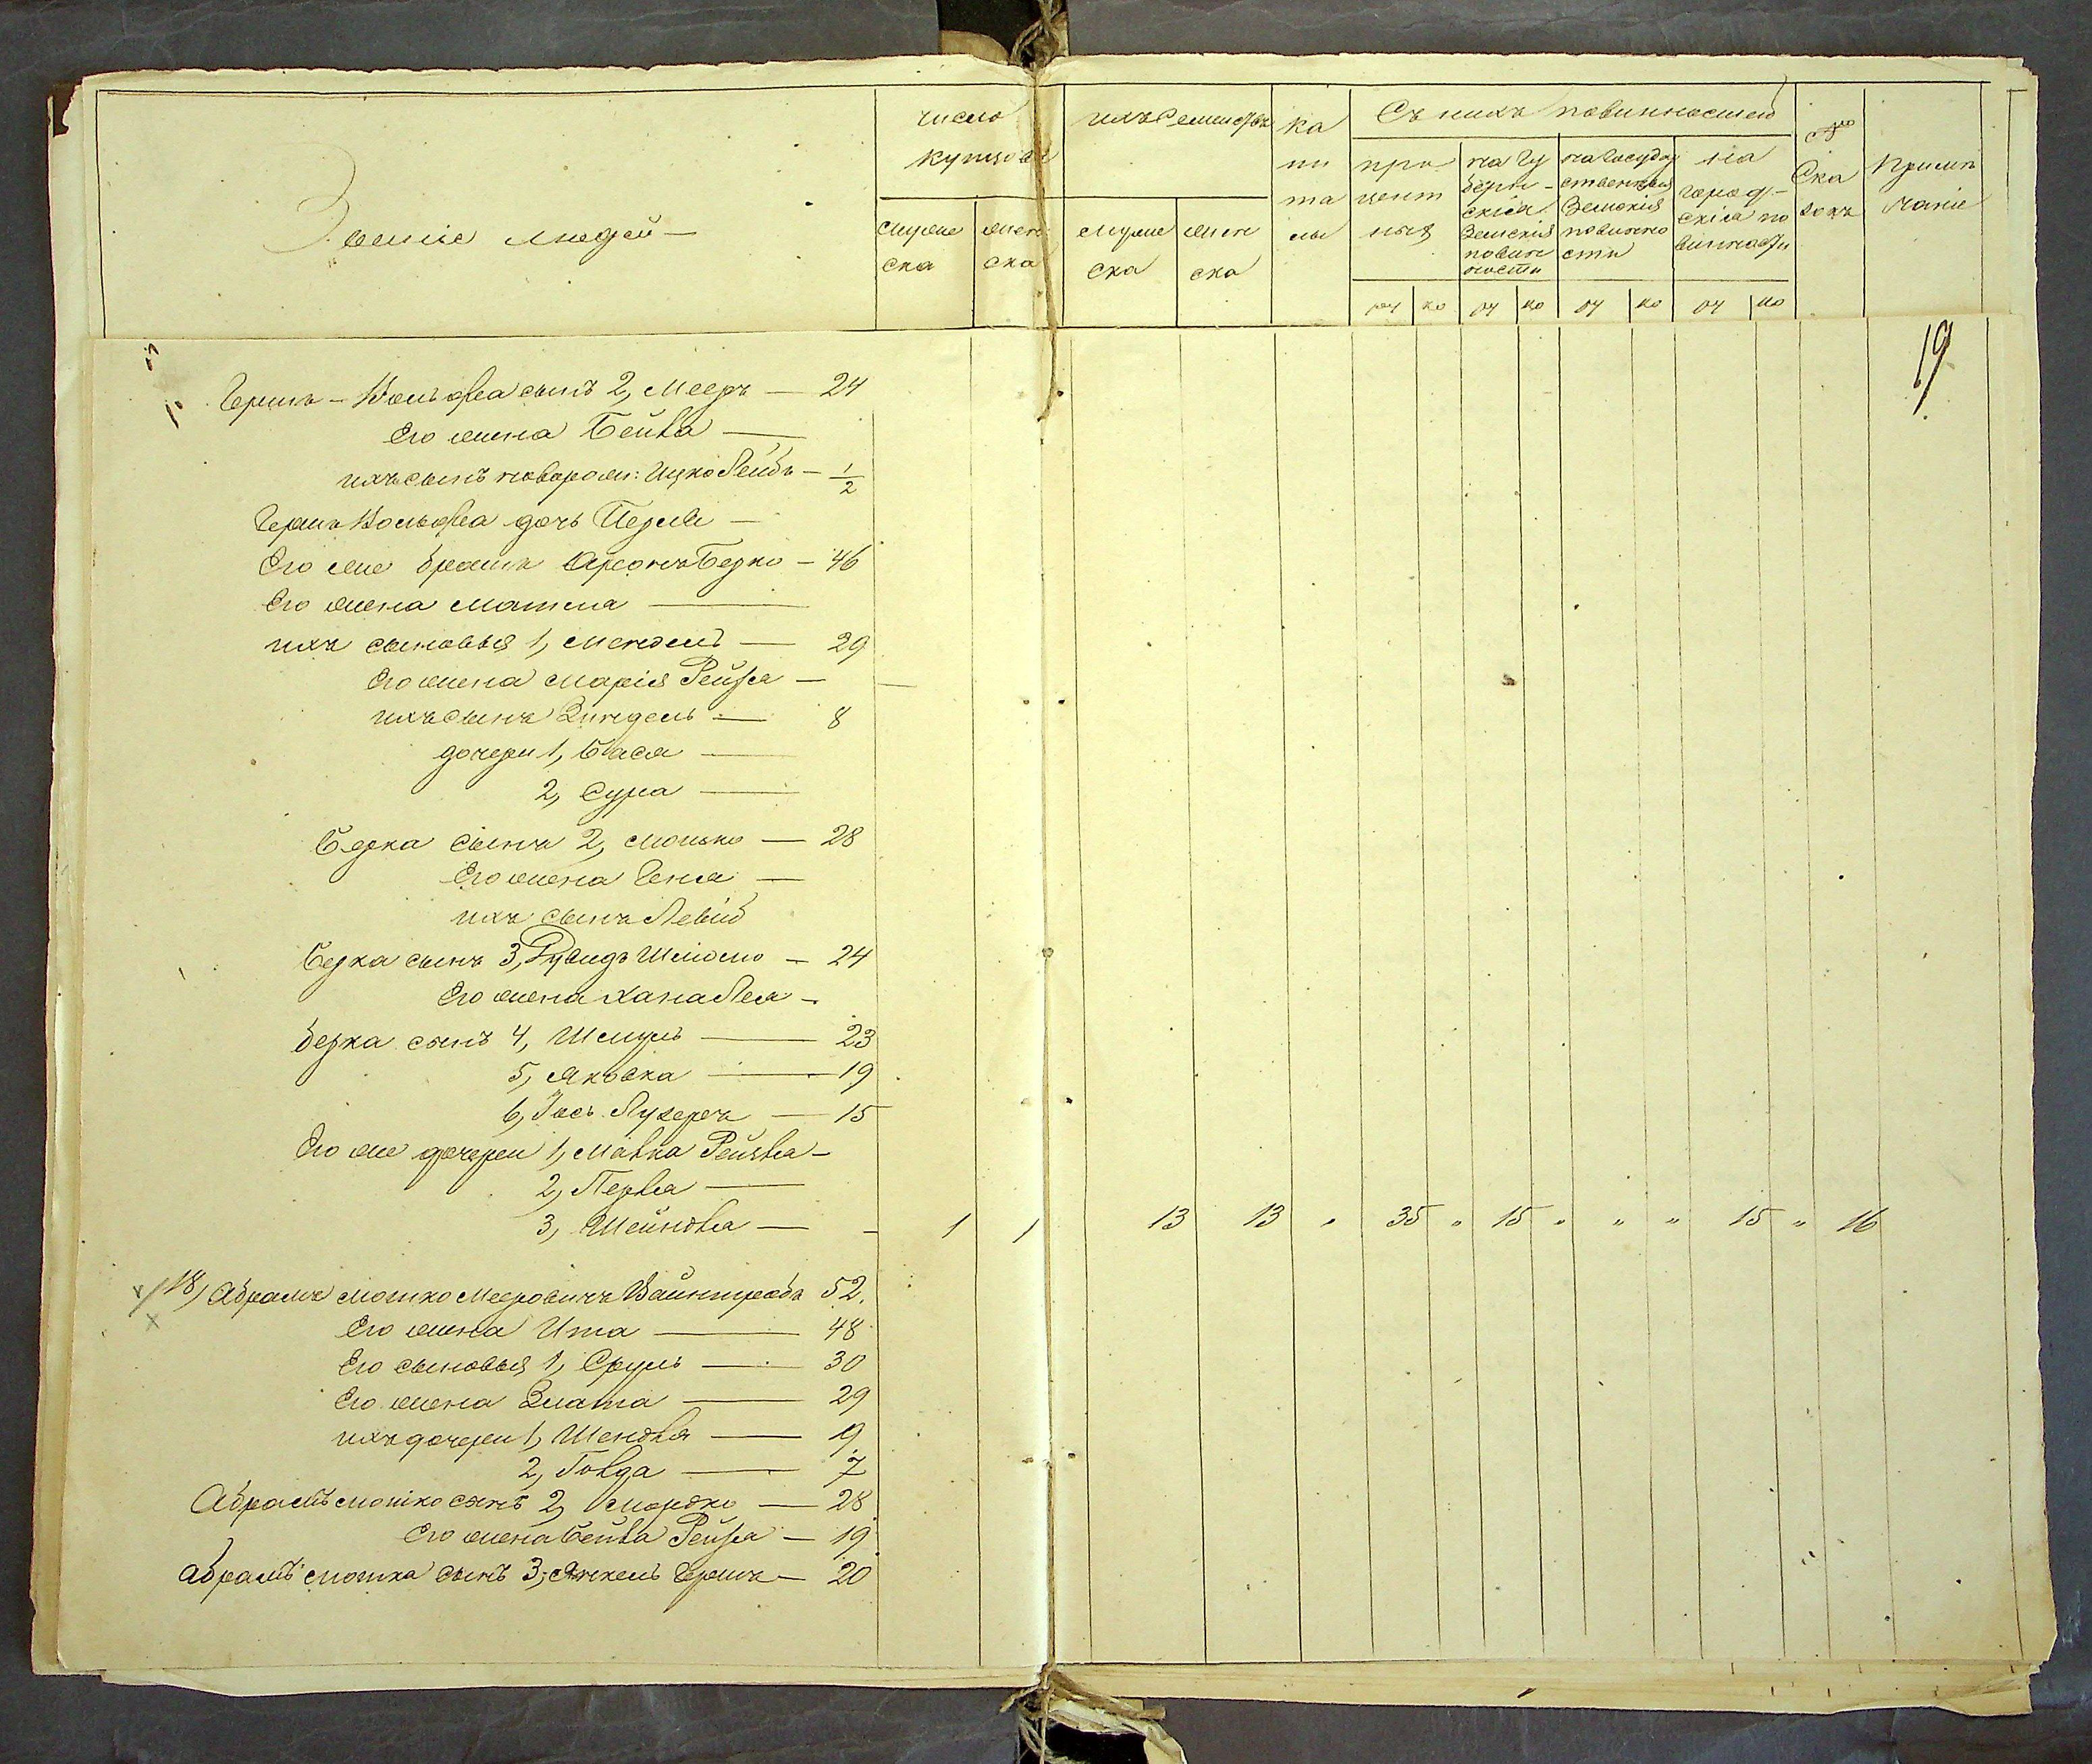 Званіе людей
число купцовъ
мужеска
женска
ихъ Семействъ
мужеска
женска
капиталы
Съ нихъ повинностей
процентныя
на Губернскія Земскія повинности
на Государственныя Земскія повинности
на городскія повинности
ру ко ру ко ру ко ру ко
№ Сказокъ
Примѣчаніе
19
Герша-Вольфа сынъ 2, Мееръ — 24
Его жена Бейла —
ихъ сынъ новорож: Ицко Лейбъ — 1/2
Герша Вольфа дочь Перля —
Его же братъ Аронъ Берко — 46
Его жена Матля —
ихъ сыновья 1, Мендель — 29
Его жена Марія Рейза —
ихъ сынъ Зиндель — 8
дочери 1, Бася —
2, Сура —
Берка сынъ 2, Мошко — 28
Его жена Геня —
ихъ сынъ Левій
Берка сынъ 3, Рувидъ Шлёмо — 24
Его жена Хана Лея —
Берка сынъ 4, Шмуль — 23
5, Яковка — 19
6, Іось Лузеръ — 15
Его же дочери 1, Малка Рейзла —
2, Перла —
3, Шейндла — 1 1 13 13 " 35 " 15 " " " 15 " 16
18, Абрамъ Мошко Мееровичъ Вайнтробъ 52.
Его жена Ита — 48
Его сыновья 1, Сруль — 30
Его жена Злата — 29
ихъ дочери 1, Шендля — 9
2, Голда — 7
Абрамъ Мошко сынъ 2, Мордко — 28
Его жена Бейла Рейза — 19
Абрамъ Мошка сынъ 3, Янкель Гершъ — 20